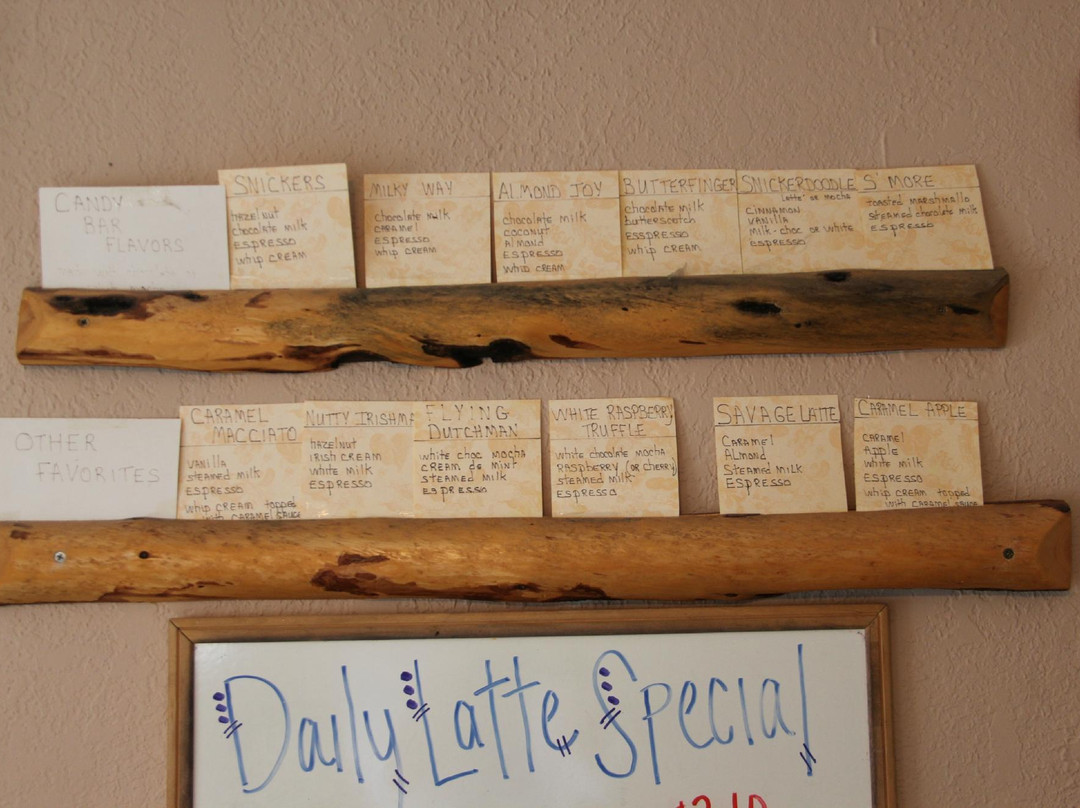 CANDY
BAR
FLAVORS
SNICKERS
HAZELNUT
chocolate milk
ESPRESSO
whip CREAM
MILKY WAY
chocolate milk
CARAMEL
ESPRESSO
whip CREAM
ALMOND JOY
chocolate milk
coconut
ALMOND
ESPRESSO
WHIP CREAM
BUTTERFINGER
chocolate milk
butterscotch
ESSPRESSO
whip CREAM
SNICKERDOODLE
Latte or mocha
CINNAMON
VANILLA
milk-choc or white
ESPRESSO
S'MORE
toasted marshmallo
steamed chocolate milk
ESPRESSO
OTHER
FAVORITES
CARAMEL
MACCIATO
VANILLA
STEAMED MILK
ESPRESSO
whip CREAM topped
with CARAMEL SAUCE
NUTTY IRISHMA
HAZELNUT
IRISH CREAM
white milk
ESPRESSO
FLYING
DUTCHMAN
white choc mocha
CREAM de mint
steamed milk
ESPRESSO
WHITE RASPBERRY
TRUFFLE
white chocolate mocha
RASPBERRY (OR CHERRY)
steamed milk
ESPRESSO
SAVAGE LATTE
CARAMEL
ALMOND
STEAMED MILK
ESPRESSO
CARAMEL APPLE
CARAMEL
APPLE
white milk
ESPRESSO
whip CREAM topped
with CARAMEL SAUCE
Daily Latte Special